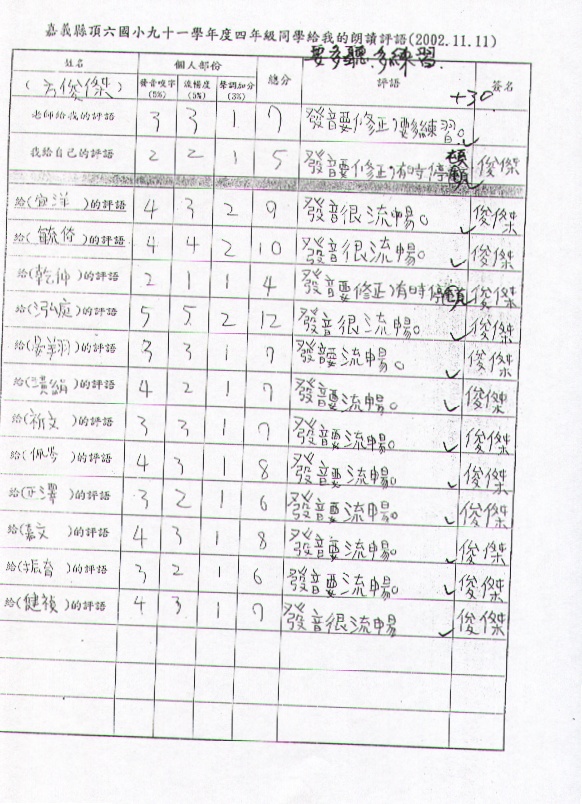 嘉義縣頂六國小九十一學年度四年級同學給我的朗讀評語(2002.11.11)
要多聽.多練習.
姓名 個人部份 總分 評語 簽名
發音咬字(5%) 流暢度(5%) 聲調加分(3%)
俊傑) +30
老師給我的評語 3 3 1 7 發音要修正,要多練習。
我給自己的評語 2 2 1 5 發音要修正,有時停頓 俊傑
給(宣洋)的評語 4 3 2 9 發音很流暢。 俊傑
給(毓倚)的評語 4 4 2 10 發音很流暢。 俊傑
給(乾坤)的評語 2 1 1 4 發音要修正,有時停頓 俊傑
給(泓庭)的評語 5 5 2 12 發音很流暢。 俊傑
給( )的評語 3 3 1 7 發音要流暢。 俊傑
給( )的評語 4 2 1 7 發音要流暢。 俊傑
給(祈文)的評語 3 3 1 7 發音要流暢。 俊傑
給(佩岑)的評語 4 3 1 8 發音要流暢。 俊傑
給(正澤)的評語 3 2 1 6 發音要流暢。 俊傑
給(嘉文)的評語 4 3 1 8 發音要流暢。 俊傑
給(振育)的評語 3 2 1 6 發音要流暢。 俊傑
給( )的評語 4 3 1 7 發音很流暢 俊傑